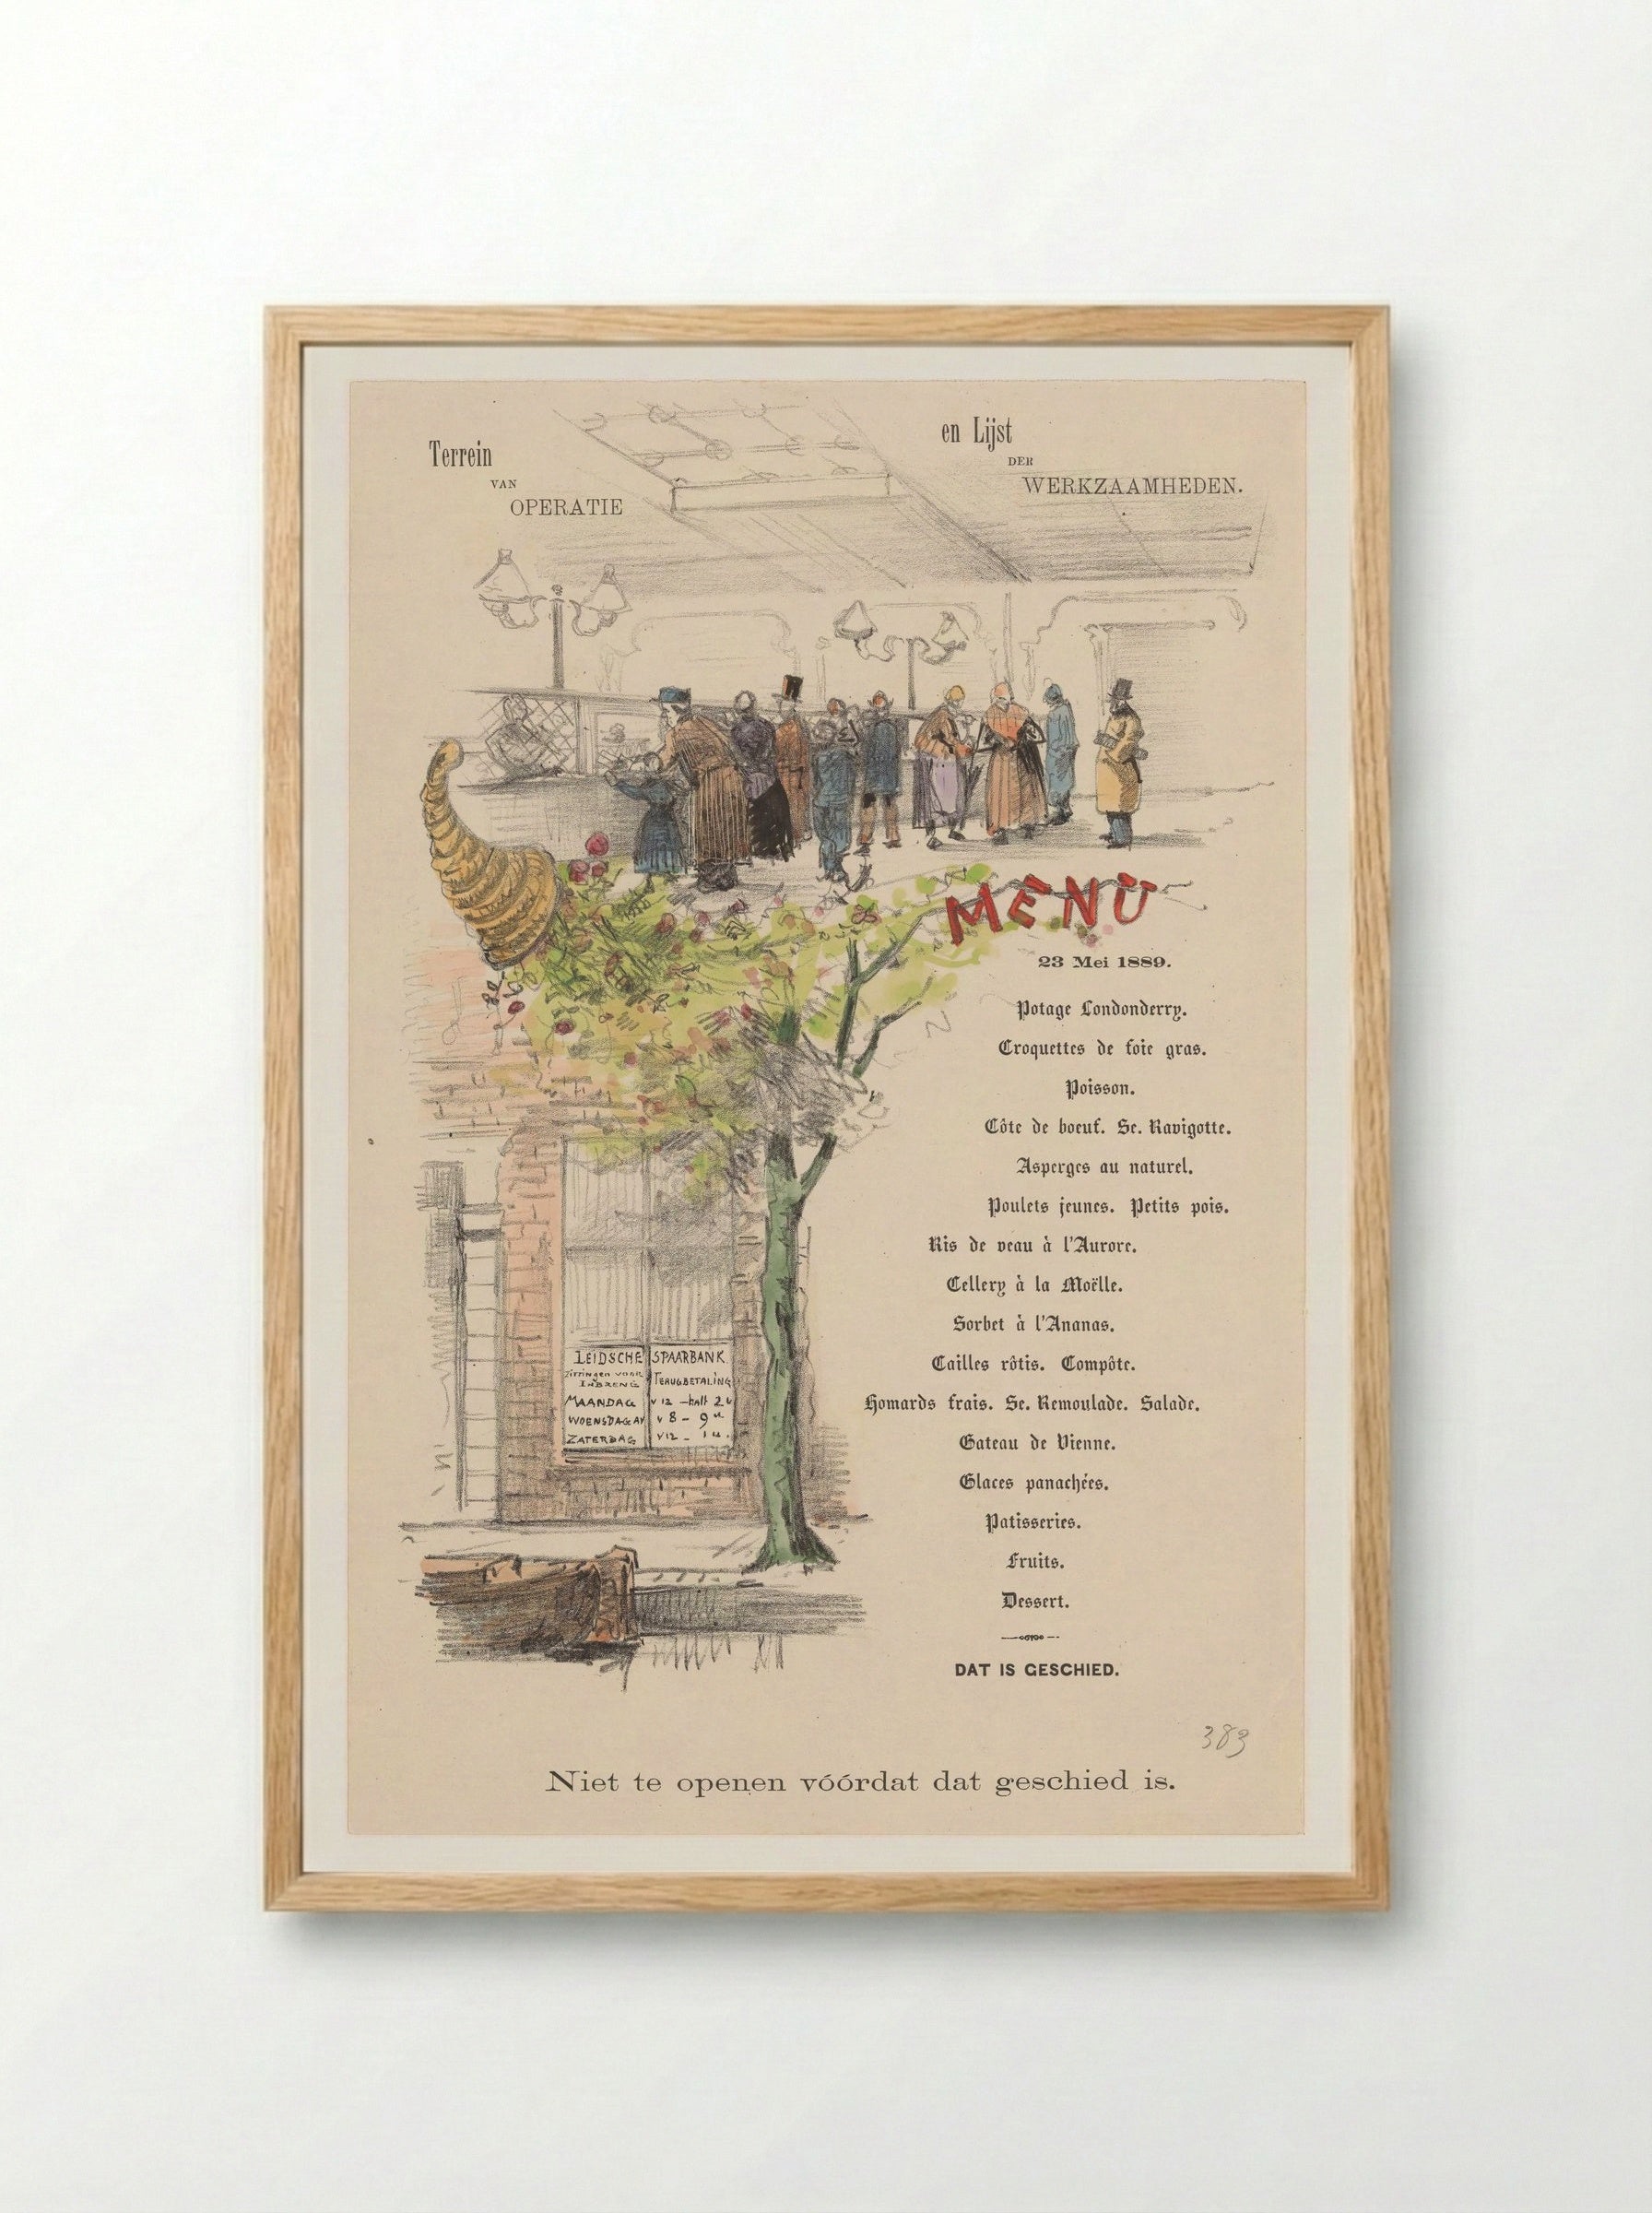 Terrein
VAN
OPERATIE
en Lijst
DER
WERKZAAMHEDEN.
MENU
23 Mei 1889.
Potage Londonderry.
Croquettes de foie gras.
Poisson.
Côte de boeuf. Sc. Ravigotte.
Asperges au naturel.
Poulets jeunes. Petits pois.
Ris de veau à l'Aurore.
Cellery à la Moëlle.
Sorbet à l'Ananas.
Cailles rôtis. Compôte.
Homards frais. Sc. Remoulade. Salade.
Gateau de Vienne.
Glaces panachées.
Patisseries.
Fruits.
Dessert.
DAT IS GESCHIED.
LEIDSCHE SPAARBANK
Zittingen voor
INBRENG
TERUGBETALING
MAANDAG v 12 - half 2 u
WOENSDAG AV v 8 - 9 u
ZATERDAG v 12 - 1 u.
383
Niet te openen vóórdat dat geschied is.